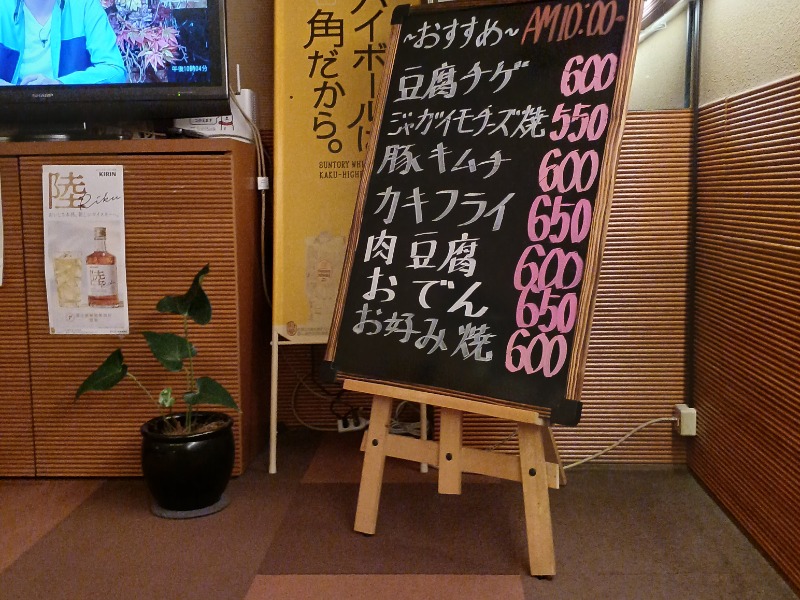 ~おすすめ~ AM10:00-
豆腐チゲ 600
ジャガイモチーズ焼 550
豚キムチ 600
カキフライ 650
肉豆腐 600
おでん 650
お好み焼 600
ハイボールは
角だから。
SUNTORY WH
KAKU-HIGH
午後10時04分
SHARP
陸
Riku
KIRIN